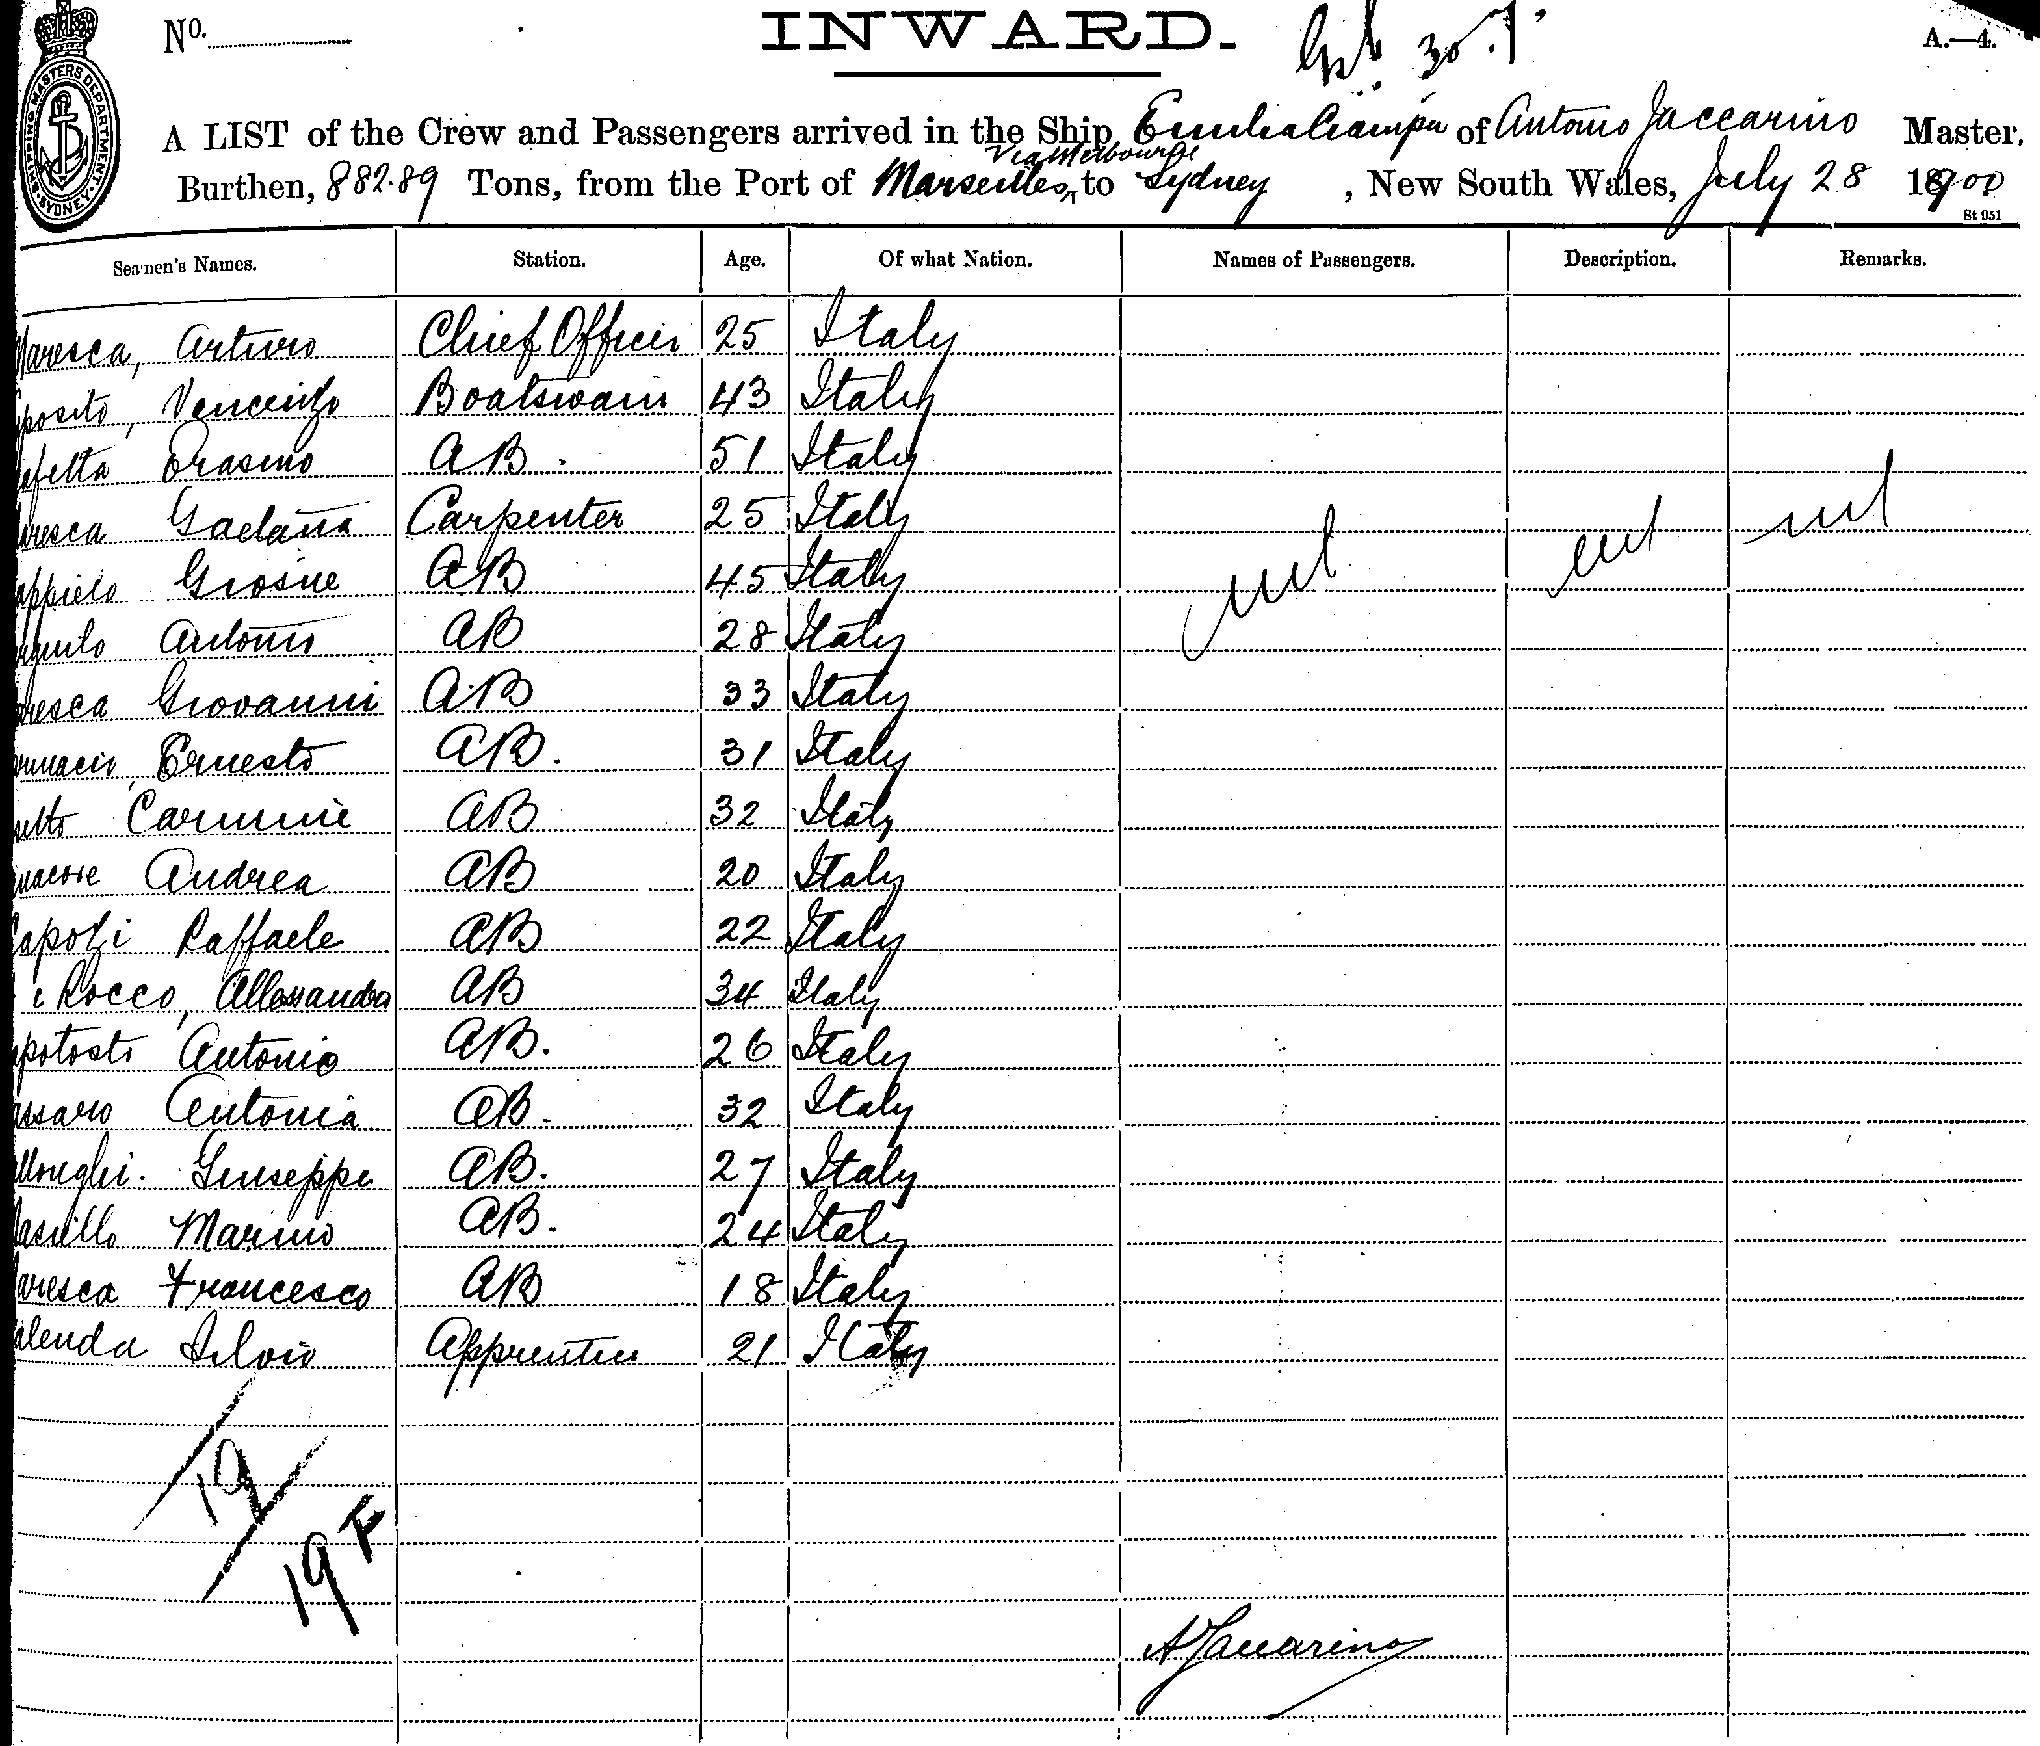 No.
INWARD.
A.—4.
SHIPPING MASTERS DEPARTMENT. SYDNEY
A LIST of the Crew and Passengers arrived in the Ship Emilia Ciampa of Antonio Jaccarino Master,
via Melbourne
Burthen, 882.89 Tons, from the Port of Marseilles to Sydney, New South Wales, July 28 1900
St 951
Seamen's Names. Station. Age. Of what Nation. Names of Passengers. Description. Remarks.
Maresca, Arturo Chief Officer 25 Italy
sposito, Vencenzo Boatswain 43 Italy
Erasmo AB. 51 Italy
aresca Gaetana Carpenter 25 Italy nil nil nil
appielo AB 45 Italy
Antonio AB 28 Italy
aresca Giovanni AB 33 Italy
Ernesto AB. 31 Italy
Carmine AB 32 Italy
Andrea AB 20 Italy
Capozzi Raffaele AB 22 Italy
e Rocco, Allessandra AB 34 Italy
apotosti Antonio AB. 26 Italy
assaro Antonia AB. 32 Italy
Giuseppe AB. 27 Italy
Marino AB. 24 Italy
aresca Francesco AB 18 Italy
alenda Silvio Apprentice 21 Italy
19
19 F
A Jaccarino